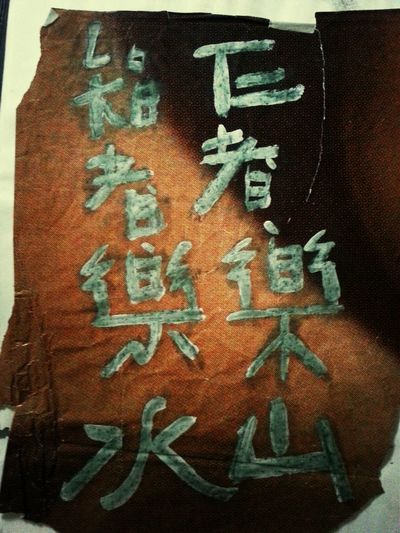 仁者樂山
智者樂水